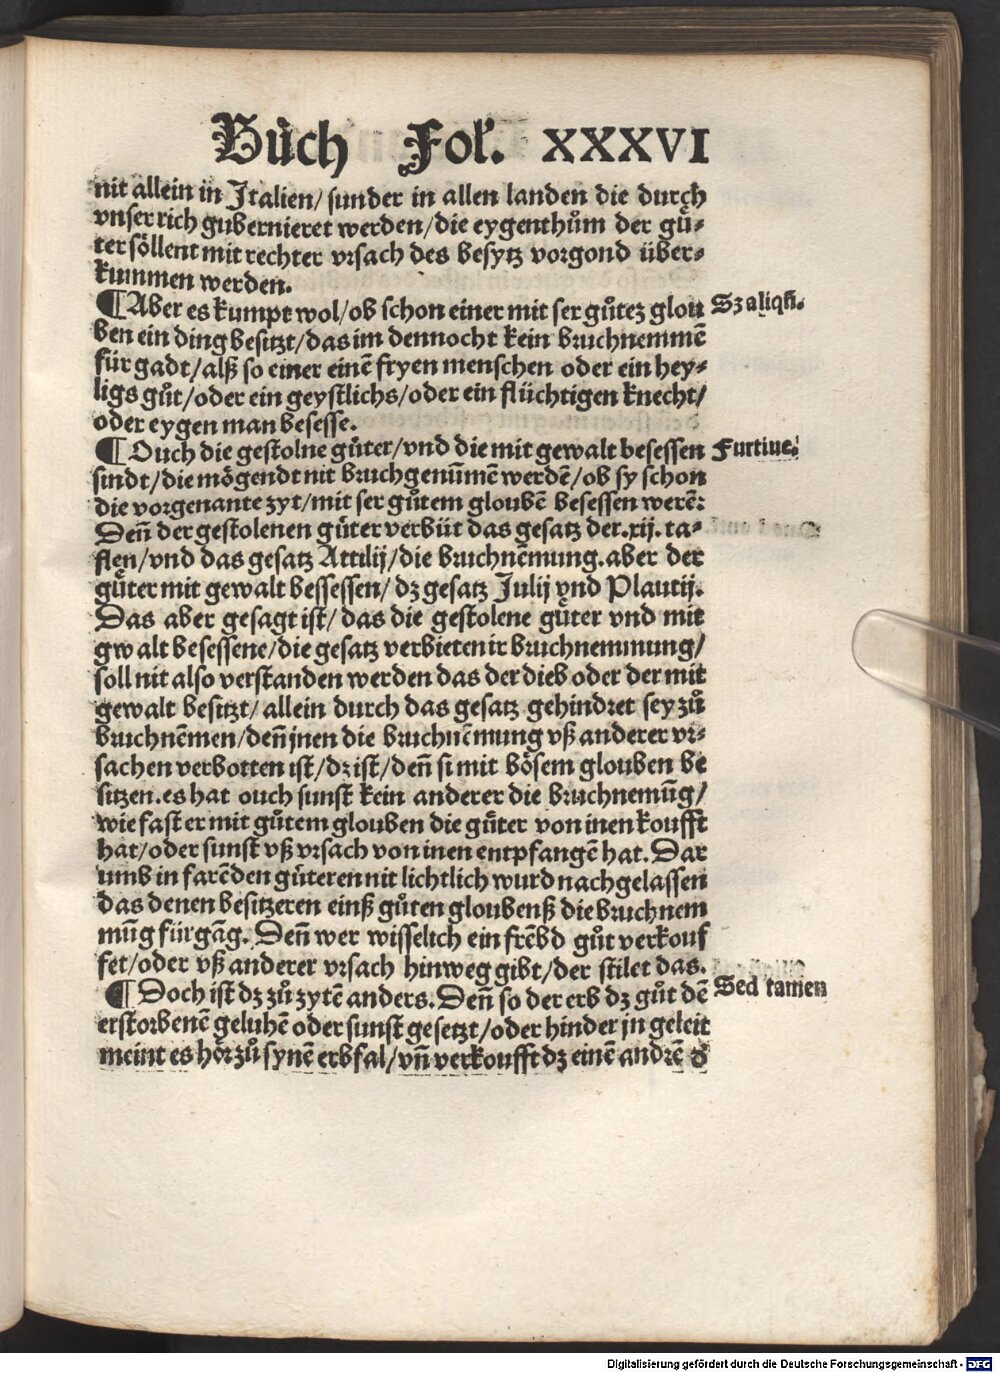 Bůch Fol. XXXVI
nit allein in Italien/ sunder in allen landen die durch
vnser rich gubernieret werden/die eygenthům der guͤ-
ter soͤllent mit rechter vrsach des besytz vorgond über-
kummen werden.
¶ Aber es kumpt wol/ob schon einer mit ser gůtez glou
Sz aliqñ.
ben ein ding besitzt/das im dennocht kein bruchnemmē
für gadt/alß so einer einē fryen menschen oder ein hey-
ligs gůt/oder ein geystlichs/oder ein flüchtigen knecht/
oder eygen man besesse.
¶ Ouch die gestolne guͤter/vnd die mit gewalt besessen
Furtiue.
sindt/die moͤgendt nit bruchgenūmē werdē/ob sy schon
die vorgenante zyt/mit ser gůtem gloubē besessen werē:
Deñ der gestolenen guͤter verbüt das gesatz der.xij. ta-
flen/vnd das gesatz Attilij/die bruchnēmung.aber der
guͤter mit gewalt bessessen/ dz gesatz Julij vnd Plautij.
Das aber gesagt ist/das die gestolene guͤter vnd mit
gwalt besessene/die gesatz verbieten ir bruchnemmung/
soll nit also verstanden werden das der dieb oder der mit
gewalt besitzt/ allein durch das gesatz gehindret sey zů
bruchnēmen/deñ jnen die bruchnēmung vß anderer vr-
sachen verbotten ist/dz ist/deñ si mit boͤsem glouben be
sitzen.es hat ouch sunst kein anderer die bruchnemūg/
wie fast er mit gůtem glouben die guͤter von inen koufft
hat/oder sunst vß vrsach von inen entpfangē hat. Dar
umb in farēden guͤteren nit lichtlich wurd nachgelassen
das denen besitzeren einß gůten gloubenß die bruchnem
mūg für gāg. Deñ wer wisselich ein frēbd gůt verkouf
fet/oder vß anderer vrsach hinweg gibt/der stilet das.
¶ Doch ist dz zů zytē anders. Deñ so der erb dz gůt dē
Sed tamen
erstorbenē geluhē oder sunst gesetzt/oder hinder jn geleit
meint es hoͤr zů synē erbfal/vñ verkoufft dz einē andrē d
Digitalisierung gefördert durch die Deutsche Forschungsgemeinschaft - DFG